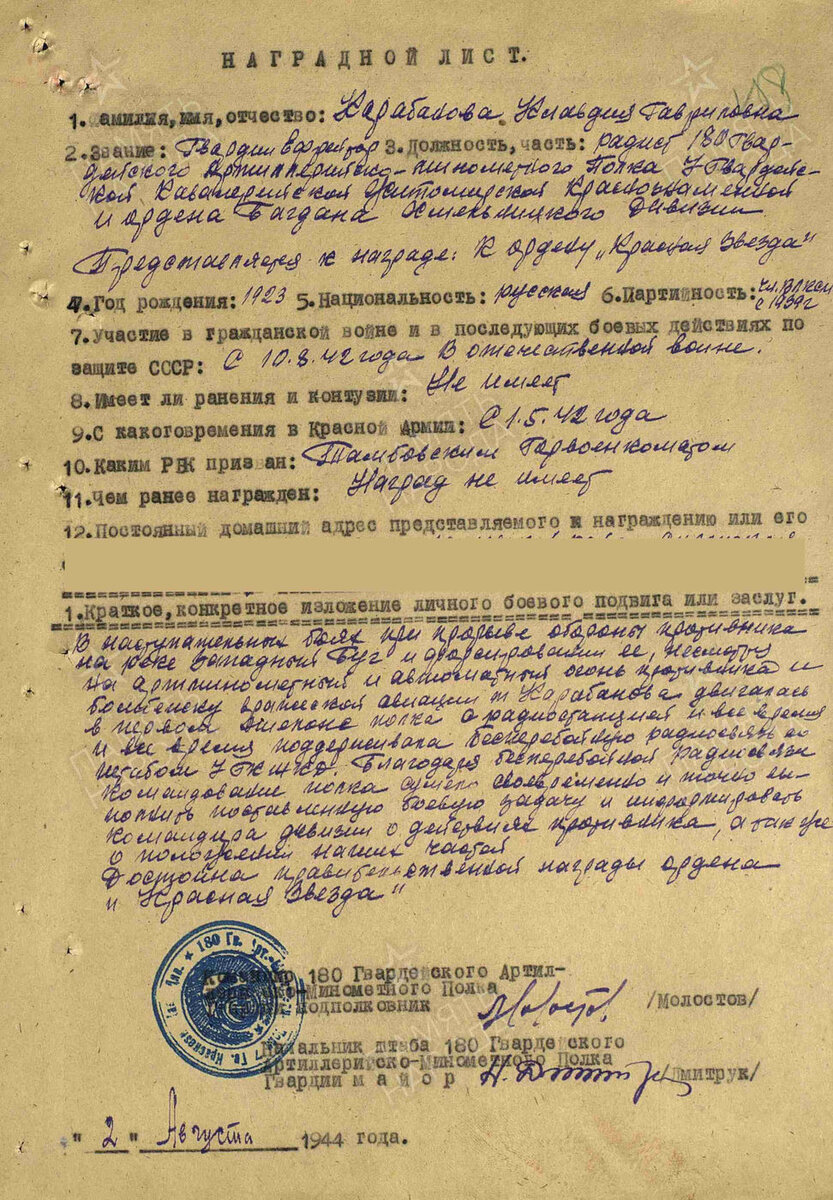 118
НАГРАДНОЙ ЛИСТ.
1. Фамилия, имя, отчество: Карабанова Клавдия Гавриловна
2. Звание: Гвардии ефрейтор 3. Должность, часть: радист 180 Гвар-
дейского Артиллерийско-минометного Полка 7 Гвардейс-
кой Кавалерийской Житомирской Краснознаменной
и ордена Багдана Хмельницкого Дивизии
Представляется к награде: К ордену „Красная Звезда"
4. Год рождения: 1923 5. Национальность: русская 6. Партийность: чл. ВЛКСМ
с 1939г
7. Участие в гражданской войне и в последующих боевых действиях по
защите СССР: С 10.8.42 года В отечественной войне.
8. Имеет ли ранения и контузии: Не имеет
9. С какоговремени в Красной Армии: С 1.5.42 года
10. Каким РВК призван: Тамбовским Горвоенкоматом
11. Чем ранее награжден: Наград не имеет
12. Постоянный домашний адрес представляемого к награждению или его
1. Краткое, конкретное изложение личного боевого подвига или заслуг.
В наступательных боях при прорыве обороны противника
на реке Западный Буг и форсировании ее, несмотря
на артминометный и автоматный огонь противника и
бомбежку вражеской авиации т. Карабанова двигалась
в первом эшелоне полка с радиостанцией и все время
и все время поддерживала бесперебойную радиосвязь со
штабом 7 ГКЖКД. Благодаря бесперебойной радиосвязи
командование полка сумело своевременно и точно вы-
полнить поставленную боевую задачу и информировать
командира дивизии о действиях противника, а так же
о положении наших частей
Достойна правительственной награды ордена
„Красная Звезда"
Командир 180 Гвардейского Артил-
лерийско-Минометного Полка
Гвардии подполковник /Молостов/
Начальник штаба 180 Гвардейского
Артиллерийско-Минометного Полка
Гвардии майор /Дмитрук/
"2" Августа 1944 года.